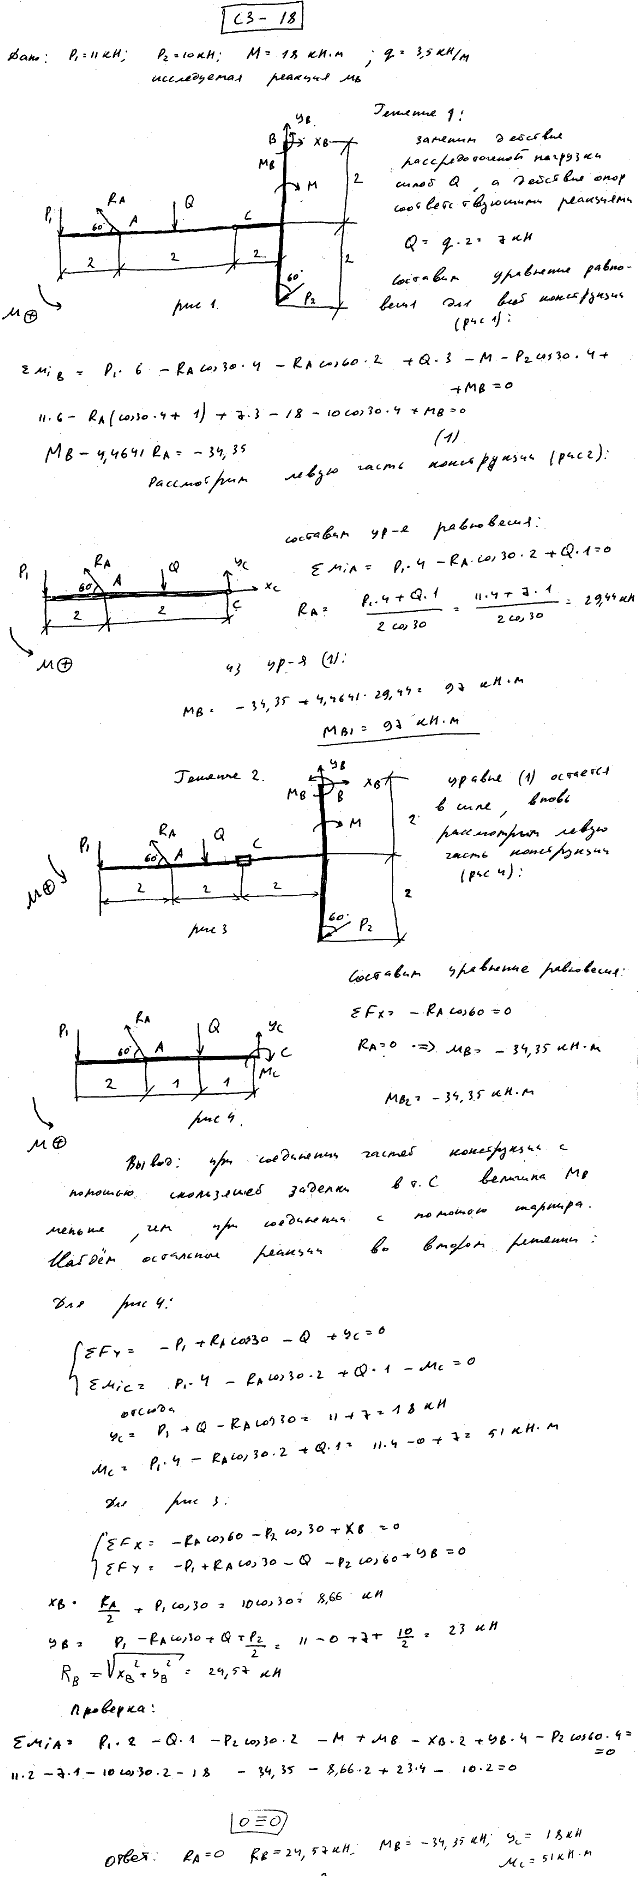 С3 - 18
Дано: P₁ = 11 кН; P₂ = 10 кН; M = 18 кН·м; q = 3,5 кН/м
исследуемая реакция MB
Решение 1:
заменим действие
рассредоточенной нагрузки
силой Q, а действие опор
соответствующими реакциями
Q = q·2 = 7 кН
составим уравнение равно-
весия для всей конструкции
(рис 1):
YB
B XB
MB
M
P₁ RA Q C
60° A
2 2 2
2
2
60° P₂
M⊕
рис 1.
ΣMiB = P₁·6 - RA cos30·4 - RA cos60·2 + Q·3 - M - P₂cos30·4 +
+ MB = 0
11·6 - RA(cos30·4 + 1) + 7·3 - 18 - 10cos30·4 + MB = 0
MB - 4,4641 RA = -34,35 (1)
Рассмотрим левую часть конструкции (рис 2):
составим ур-я равновесия:
P₁ RA Q YC
60° A XC
C
2 2
M⊕
ΣMiA = P₁·4 - RA·cos30·2 + Q·1 = 0
RA = P₁·4 + Q·1 / 2 cos30 = 11·4 + 7·1 / 2 cos30 = 29,44 кН
из ур-я (1):
MB = -34,35 + 4,4641·29,44 = 97 кН·м
MB₁ = 97 кН·м
Решение 2.
YB
XB
MB B
M
P₁ RA Q C
60° A
2 2 2
2
2
60° P₂
M⊕
рис 3
уравне (1) остается
в силе, вновь
рассмотрим левую
часть конструкции
(рис 4):
Составим уравнение равновесия:
P₁ RA Q YC
60° A C
MC
2 1 1
M⊕
рис 4.
ΣFx = -RA cos60 = 0
RA = 0 => MB = -34,35 кН·м
MB₂ = -34,35 кН·м
Вывод: при соединении частей конструкции с
помощью скользящей заделки в т. С величина MB
меньше, чем при соединении с помощью шарнира.
Найдём остальные реакции во втором решении:
Для рис 4:
ΣFY = -P₁ + RA cos30 - Q + YC = 0
ΣMiC = P₁·4 - RA cos30·2 + Q·1 - MC = 0
отсюда
YC = P₁ + Q - RA cos30 = 11 + 7 = 18 кН
MC = P₁·4 - RA cos30·2 + Q·1 = 11·4 - 0 + 7 = 51 кН·м
Для рис 3:
ΣFX = -RA cos60 - P₂ cos30 + XB = 0
ΣFY = -P₁ + RA cos30 - Q - P₂ cos60 + YB = 0
XB = RA/2 + P₁ cos30 = 10cos30 = 8,66 кН
YB = P₁ - RA cos30 + Q + P₂/2 = 11 - 0 + 7 + 10/2 = 23 кН
RB = √(XB² + YB²) = 24,57 кН
Проверка:
ΣMiA = P₁·2 - Q·1 - P₂cos30·2 - M + MB - XB·2 + YB·4 - P₂cos60·4 =
= 0
11·2 - 7·1 - 10cos30·2 - 18 - 34,35 - 8,66·2 + 23·4 - 10·2 = 0
0 ≡ 0
Ответ: RA = 0 RB = 24,57 кН; MB = -34,35 кН; YC = 18 кН
MC = 51 кН·м